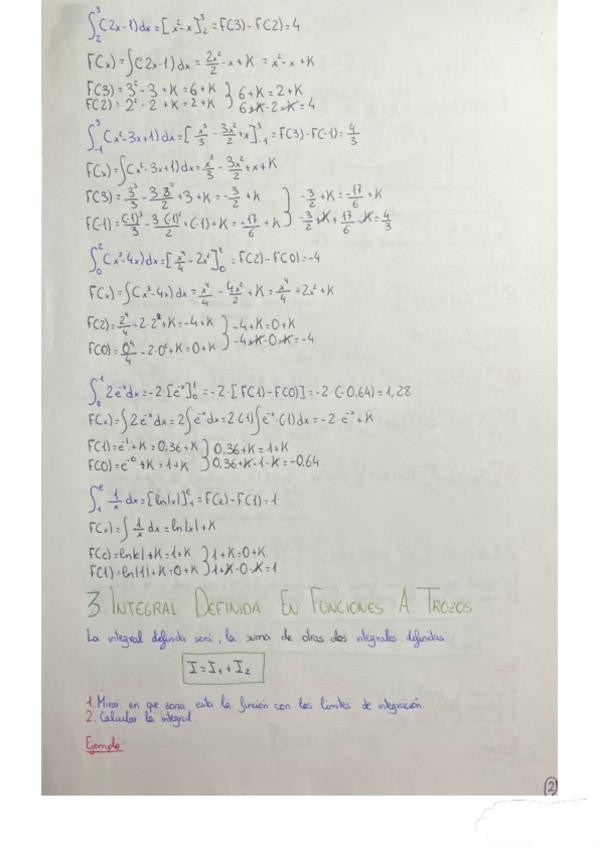 ∫₂³(2x-1)dx=[x²-x]₂³=F(3)-F(2)=4
F(x)=∫(2x-1)dx=2x²/2-x+K=x²-x+K
F(3)=3²-3+K=6+K } 6+K=2+K
F(2)=2²-2+K=2+K } 6+K-2-K=4
∫₋₁³(x²-3x+1)dx=[x³/3-3x²/2+x]₋₁³=F(3)-F(-1)=4/3
F(x)=∫(x²-3x+1)dx=x³/3-3x²/2+x+K
F(3)=3³/3-3·3²/2+3+K=-3/2+K } -3/2+K=-17/6+K
F(-1)=(-1)³/3-3·(-1)²/2+(-1)+K=-17/6+K } -3/2+K+17/6-K=4/3
∫₀²(x³-4x)dx=[x⁴/4-2x²]₀²=F(2)-F(0)=-4
F(x)=∫(x³-4x)dx=x⁴/4-4x²/2+K=x⁴/4-2x²+K
F(2)=2⁴/4-2·2²+K=-4+K } -4+K=0+K
F(0)=0⁴/4-2·0²+K=0+K } -4+K-0-K=-4
∫₀¹2e⁻ˣdx=-2·[e⁻ˣ]₀¹=-2·[F(1)-F(0)]=-2·(-0,64)=1,28
F(x)=∫2e⁻ˣdx=2∫e⁻ˣdx=2·(-1)∫e⁻ˣ·(-1)dx=-2·e⁻ˣ+K
F(1)=e⁻¹+K=0,36+K } 0,36+K=1+K
F(0)=e⁻⁰+K=1+K } 0,36+K-1-K=-0,64
∫₁ᵉ1/x dx=[ln|x|]₁ᵉ=F(e)-F(1)=1
F(x)=∫1/x dx=ln|x|+K
F(e)=ln|e|+K=1+K } 1+K=0+K
F(1)=ln|1|+K=0+K } 1+K-0-K=1
3. INTEGRAL DEFINIDA EN FUNCIONES A TROZOS.
La integral definida será, la suma de otras dos integrales definidas.
I=I₁+I₂
1. Mirar en que zona esta la función con los límites de integración.
2. Calcular la integral.
Ejemplo:
2